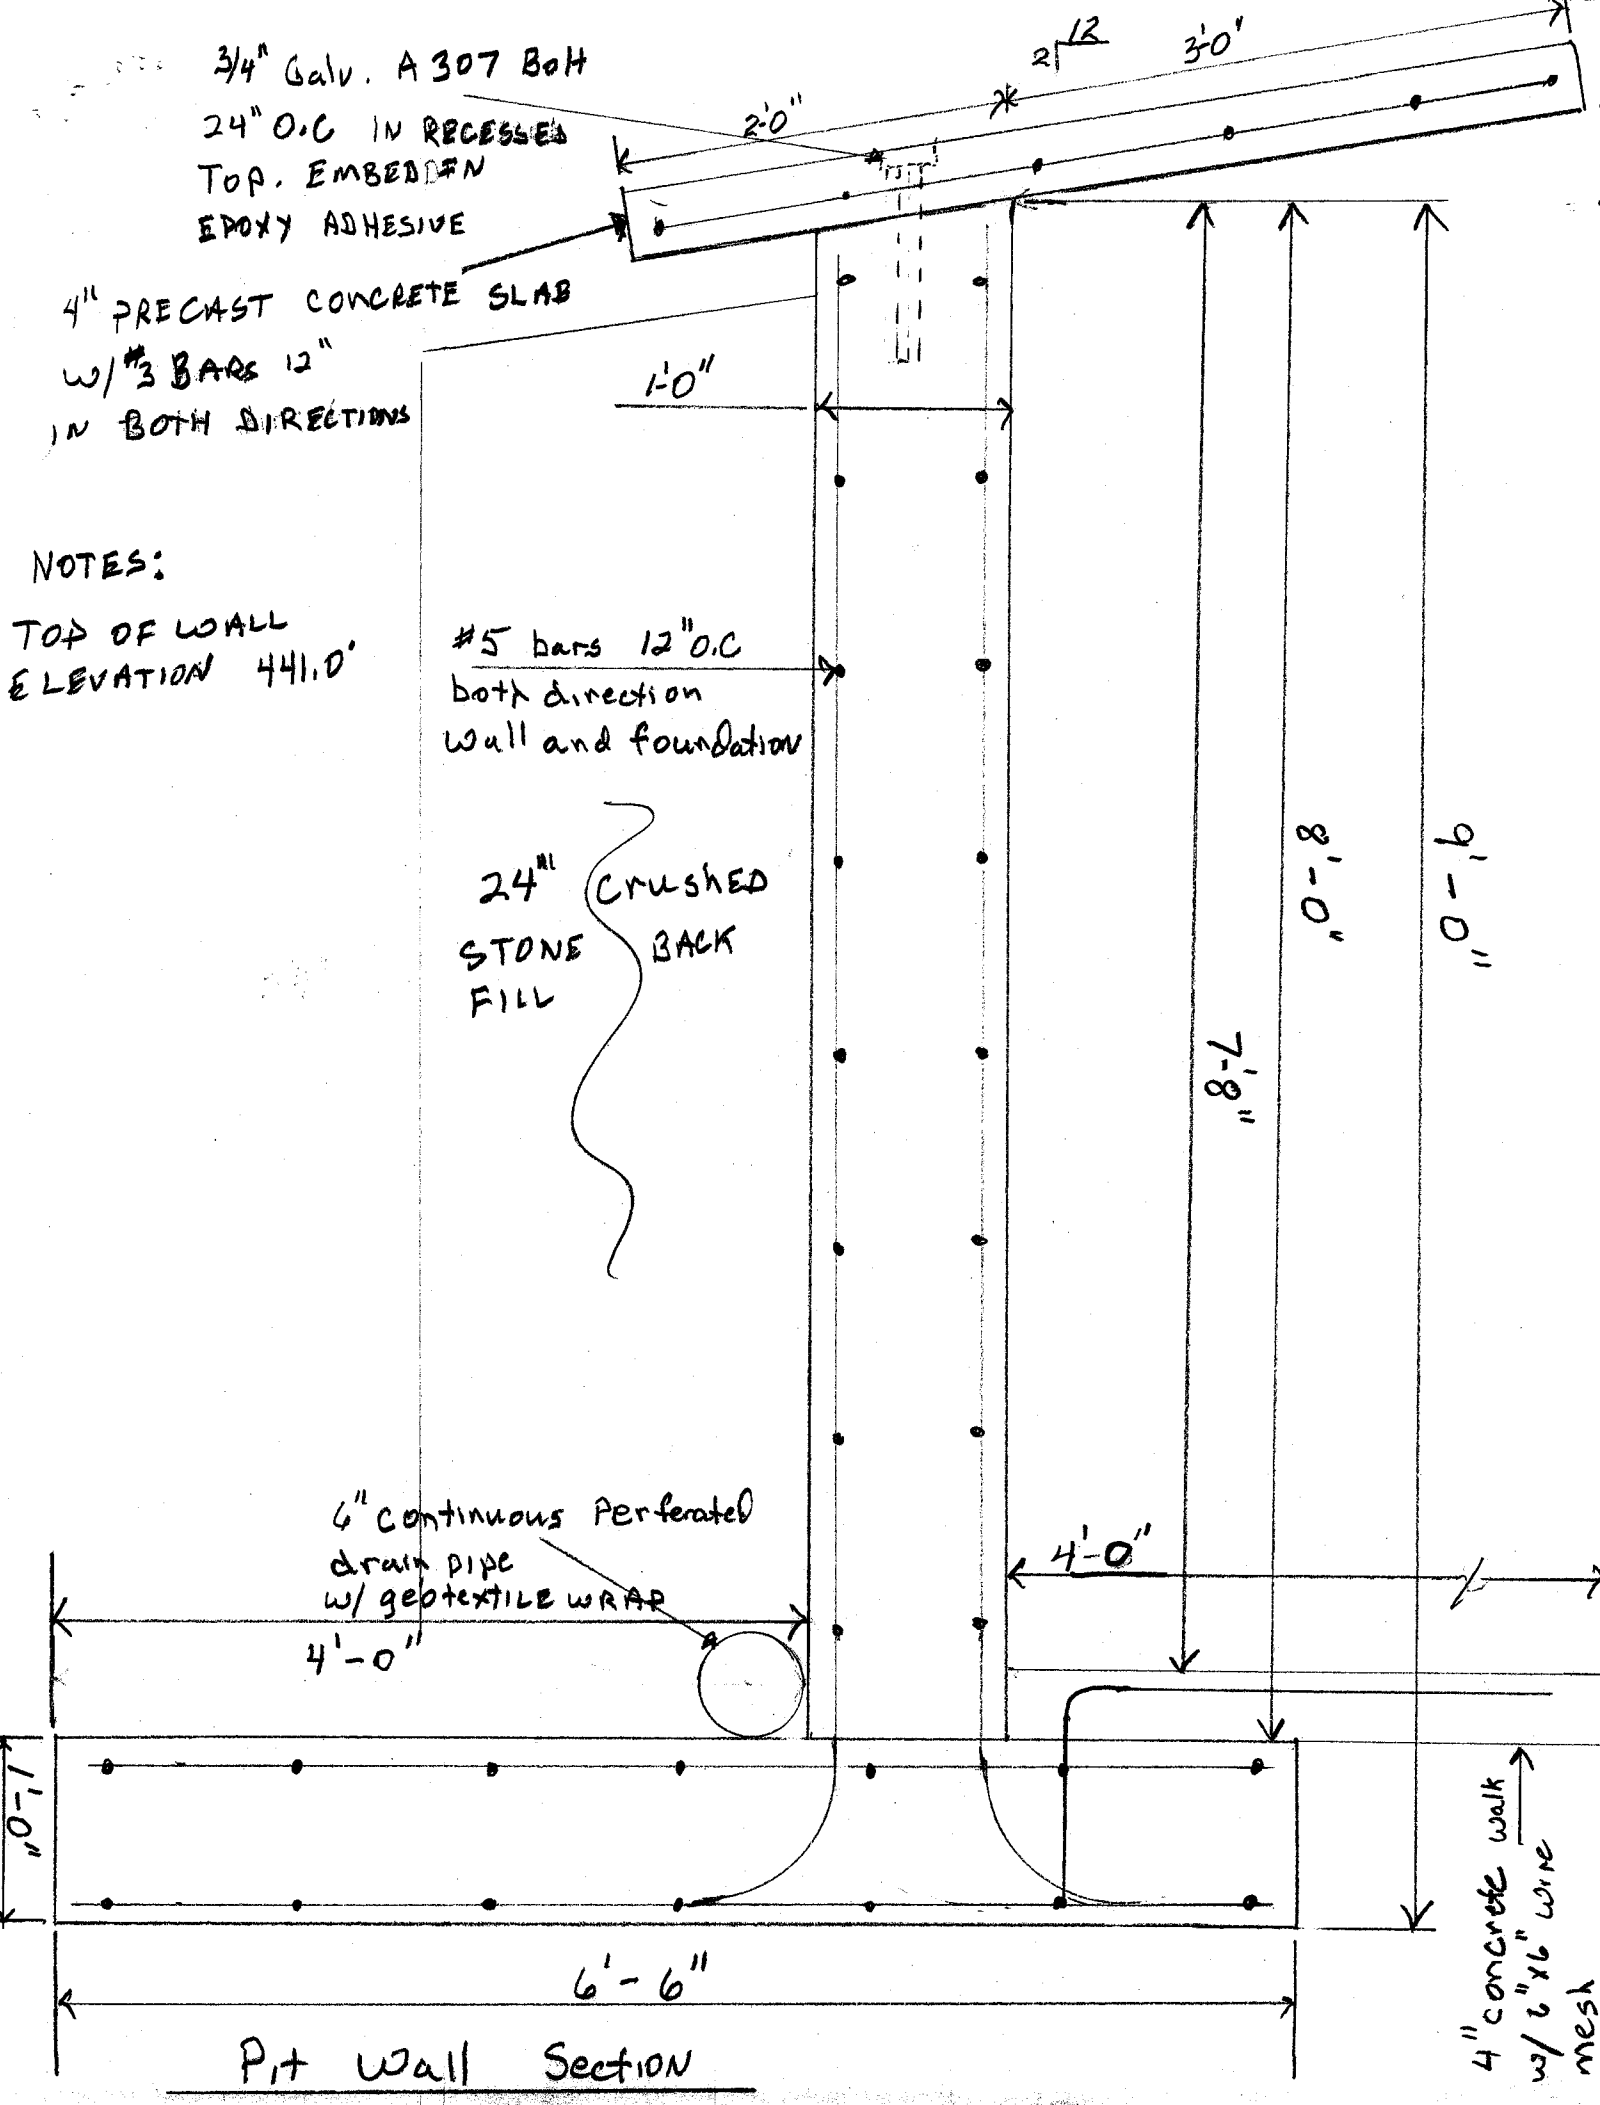 3/4" Galv. A307 Bolt
24" O.C IN RECESSED
TOP. EMBEDDEN
EPOXY ADHESIVE
4" PRECAST CONCRETE SLAB
W/ #3 BARS 12"
IN BOTH DIRECTIONS
12
2
2'-0"
3'-0"
1'-0"
NOTES:
TOP OF WALL
ELEVATION 441.0'
#5 bars 12" O.C
both direction
Wall and foundation
24" CrusHED
STONE BACK
FILL
7'-8"
8'-0"
9'-0"
6" continuous Perferated
drain pipe
w/ geotextILE WRAP
4'-0"
4'-0"
1'-0"
6'-6"
4" concrete walk
w/ 6"x6" wire
mesh
Pit Wall Section